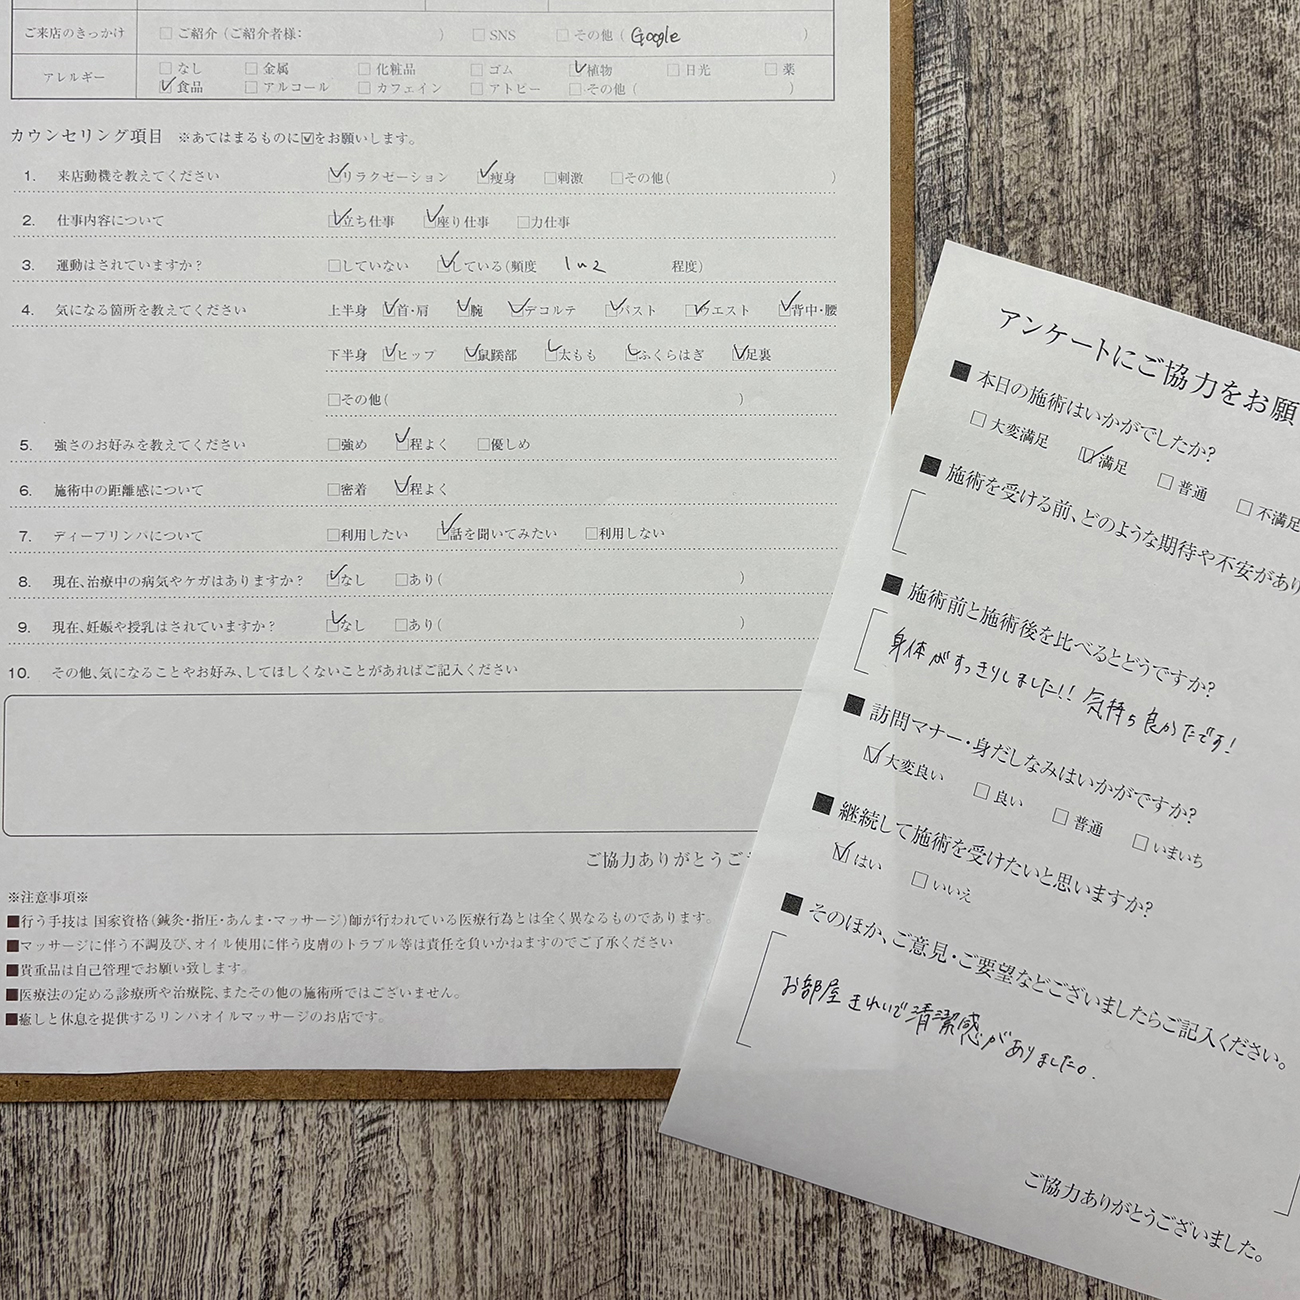 ご来店のきっかけ □ご紹介(ご紹介者様: ) □SNS □その他( Google )
アレルギー □なし □金属 □化粧品 □ゴム ☑植物 □日光 □薬
☑食品 □アルコール □カフェイン □アトピー □その他( )
カウンセリング項目 ※あてはまるものに☑をお願いします。
1. 来店動機を教えてください ☑リラクゼーション ☑痩身 □刺激 □その他( )
2. 仕事内容について ☑立ち仕事 ☑座り仕事 □力仕事
3. 運動はされていますか? □していない ☑している(頻度 程度)
4. 気になる箇所を教えてください 上半身 ☑首・肩 ☑腕 ☑デコルテ ☑バスト ☑ウエスト ☑背中・腰
下半身 ☑ヒップ ☑鼠蹊部 ☑太もも ☑ふくらはぎ ☑足裏
□その他( )
5. 強さのお好みを教えてください □強め ☑程よく □優しめ
6. 施術中の距離感について □密着 ☑程よく
7. ディープリンパについて □利用したい ☑話を聞いてみたい □利用しない
8. 現在、治療中の病気やケガはありますか? ☑なし □あり( )
9. 現在、妊娠や授乳はされていますか? ☑なし □あり( )
10. その他、気になることやお好み、してほしくないことがあればご記入ください
ご協力ありがとうご
※注意事項※
■行う手技は 国家資格(鍼灸・指圧・あんま・マッサージ)師が行われている医療行為とは全く異なるものであります。
■マッサージに伴う不調及び、オイル使用に伴う皮膚のトラブル等は責任を負いかねますのでご了承ください
■貴重品は自己管理でお願い致します。
■医療法の定める診療所や治療院、またその他の施術所ではございません。
■癒しと休息を提供するリンパオイルマッサージのお店です。
アンケートにご協力をお願
■ 本日の施術はいかがでしたか?
□大変満足 ☑満足 □普通 □不満足
■ 施術を受ける前、どのような期待や不安があり
■ 施術前と施術後を比べるとどうですか?
身体がすっきりしました!! 気持ち良かたです!
■ 訪問マナー・身だしなみはいかがですか?
☑大変良い □良い □普通 □いまいち
■ 継続して施術を受けたいと思いますか?
☑はい □いいえ
■ そのほか、ご意見・ご要望などございましたらご記入ください。
お部屋きれいで清潔感がありました。
ご協力ありがとうございました。